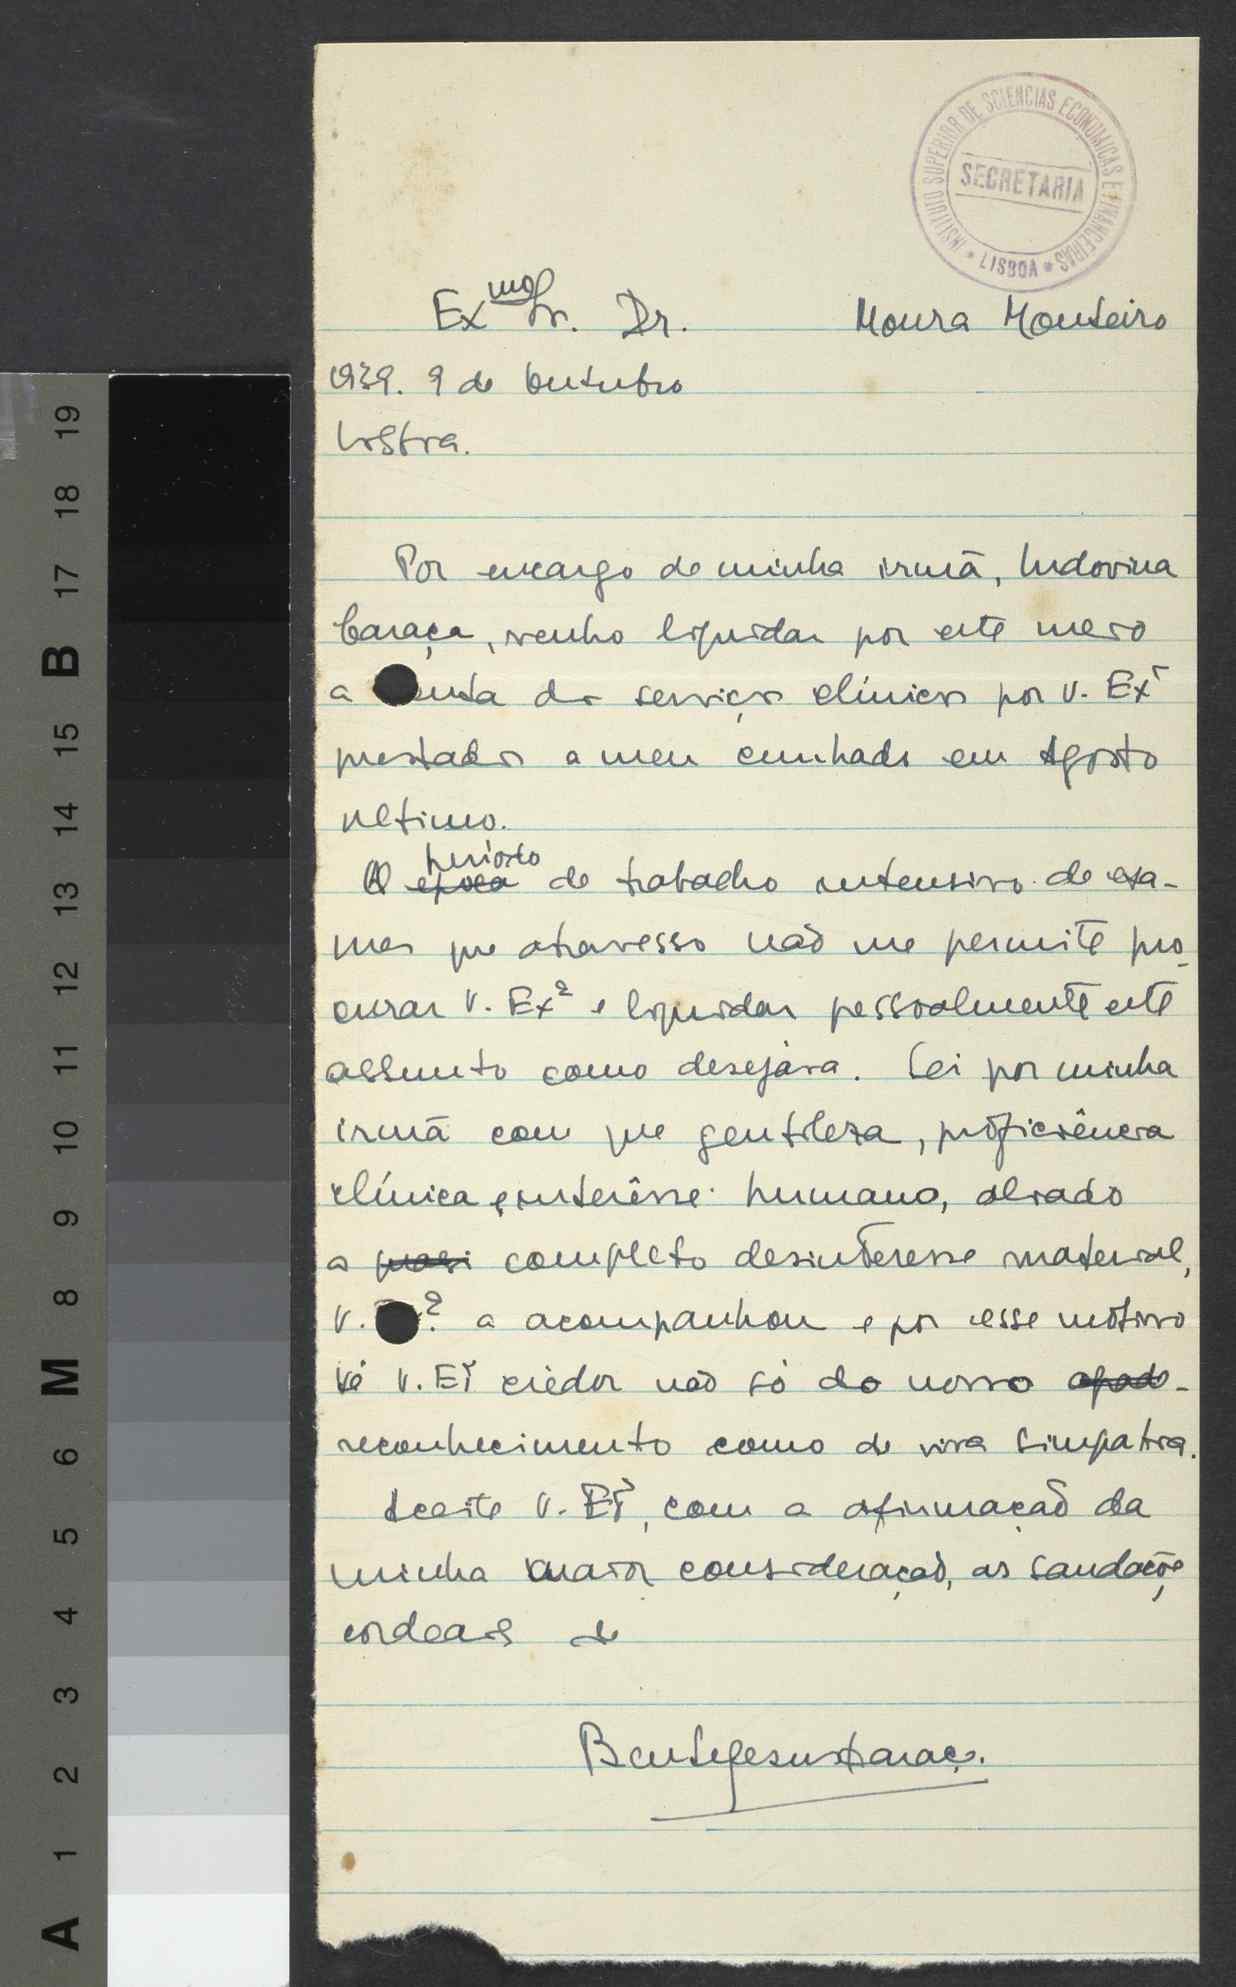 INSTITUTO SUPERIOR DE SCIENCIAS ECONOMICAS E FINANCEIRAS
SECRETARIA
* LISBOA *
Exmo Sr. Dr. Moura Monteiro
1939. 9 de Outubro
Lisboa.
Por encargo de minha irmã, Ludovina
Caraça, venho liquidar por este meio
a nta dos serviços clínicos por V. Exª
prestados a meu cunhado em Agosto
ultimo.
O epoca período de trabalho intensivo de exa-
mes que atravesso não me permite pro-
curar V. Exª e liquidar pessoalmente este
assunto como desejára. Sei por minha
irmã com que gentileza, proficiência
clínica e interêsse humano, aliado
a quasi completo desinteresse material,
V. ª a acompanhou e por esse motivo
é V. Exª crèdor não só do nosso
reconhecimento como de viva simpatia.
Aceite V. Exª, com a afirmação da
minha maior consideração, as saudações
cordeais de
Bento Jesus Caraça.
19
18
17
B
16
15
14
13
12
11
10
9
8
M
6
5
4
3
2
1
A